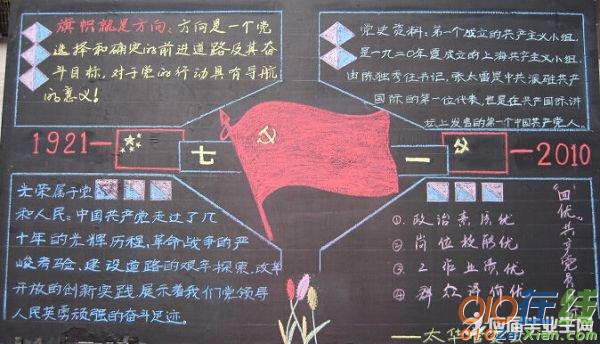 旗帜就是方向：方向是一个党
选择和确定的前进道路及其奋
斗目标，对于党的行动具有导航
的意义！
党史资料：第一个成立的共产主义小组，
是一九二〇年夏成立的上海共产主义小组，
由陈独秀任书记，张太雷是中共派驻共产
国际的第一位代表，也是在共产国际讲
坛上发言的第一个中国共产党人。
1921
七
一
2010
光荣属于党
和人民：中国共产党走过了几
十年的光辉历程，革命战争的严
峻考验、建设道路的艰辛探索，改革
开放的创新实践，展示着我们党领导
人民英勇顽强的奋斗足迹。
“四优”共产党员
①、政治素质优
②、岗位技能优
③、工作业绩优
④、群众评价优
——太华
应届毕业生网